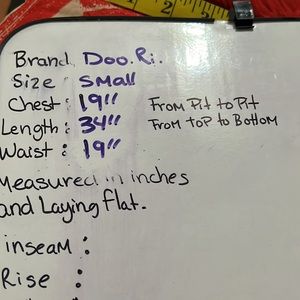 Brand Doo.Ri.
Size : Small
Chest : 19" From Pit to Pit
Length : 34" From Top to Bottom
Waist : 19"
Measured in inches
and Laying flat.
inseam :
Rise :